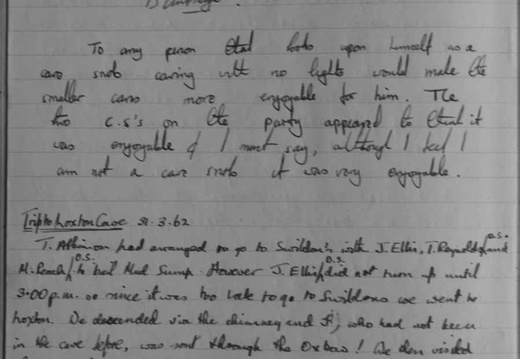 To any person that looks upon himself as a
cave snob caving with no lights would make the
smaller caves more enjoyable for him. The
two C.S's on the party appeared to think it
was enjoyable & I must say, although I feel I
am not a cave snob it was very enjoyable.
Trip to Loxton Cave 31.3.62
T. Atkinson had arranged to go to Swildon's with J. Ellis, T. Reynolds and
O.S.
M. Roach to bail Mud Sump. However J. Ellis did not turn up until
O.S. O.S.
3.00 p.m. so since it was too late to go to Swildons we went to
Loxton. We descended via the chimney and who had not been
in the cave before, was sent through the Oxbow! We then visited